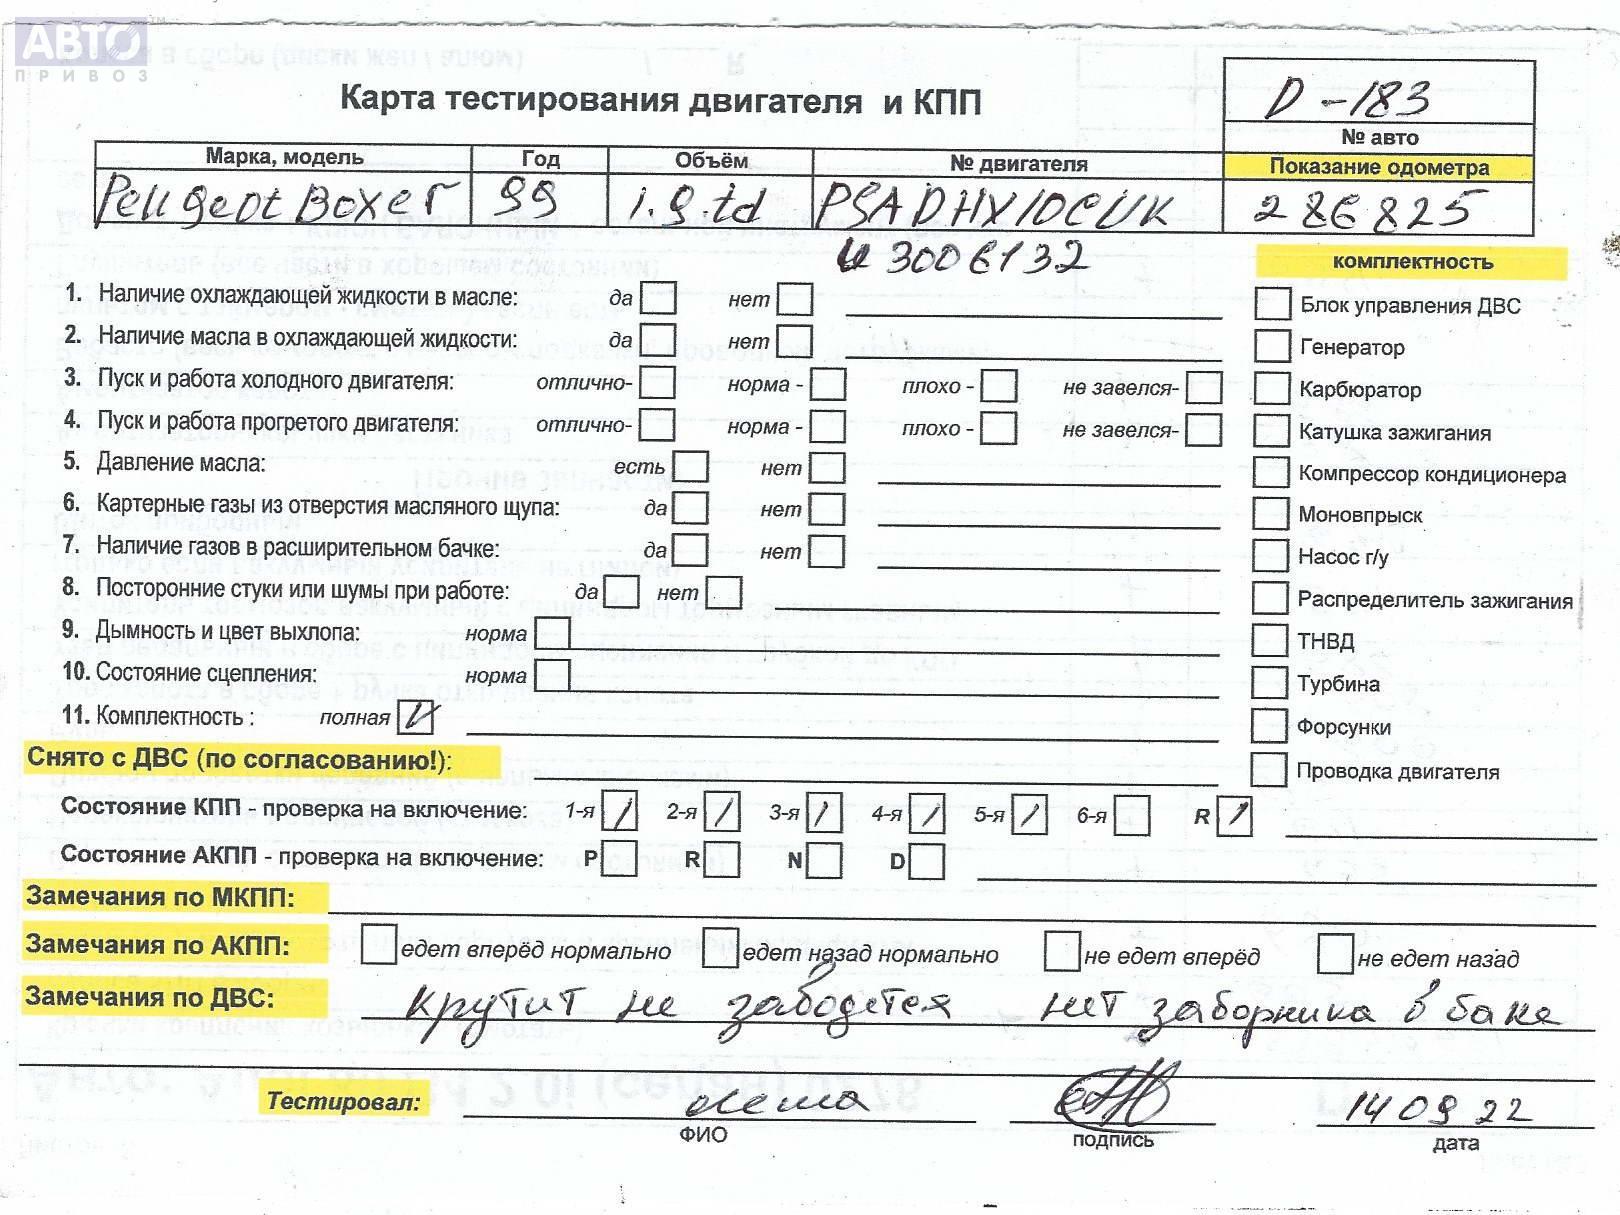 АВТО
ПРИВОЗ
Карта тестирования двигателя и КПП
D-183
№ авто
Марка, модель Год Объём № двигателя Показание одометра
Peugeot Boxer 99 1.9 td PSADHX10CUK 286825
3006132
комплектность
1. Наличие охлаждающей жидкости в масле: да нет
Блок управления ДВС
2. Наличие масла в охлаждающей жидкости: да нет
Генератор
3. Пуск и работа холодного двигателя: отлично- норма - плохо - не завелся-
Карбюратор
4. Пуск и работа прогретого двигателя: отлично- норма - плохо - не завелся-
Катушка зажигания
5. Давление масла: есть нет
Компрессор кондиционера
6. Картерные газы из отверстия масляного щупа: да нет
Моновпрыск
7. Наличие газов в расширительном бачке: да нет
Насос г/у
8. Посторонние стуки или шумы при работе: да нет
Распределитель зажигания
9. Дымность и цвет выхлопа: норма
ТНВД
10. Состояние сцепления: норма
Турбина
11. Комплектность : полная V
Форсунки
Снято с ДВС (по согласованию!):
Проводка двигателя
Состояние КПП - проверка на включение: 1-я / 2-я / 3-я / 4-я / 5-я / 6-я R /
Состояние АКПП - проверка на включение: P R N D
Замечания по МКПП:
Замечания по АКПП: едет вперёд нормально едет назад нормально не едет вперёд не едет назад
Замечания по ДВС: крутит не заводется нет заборника в баке
Тестировал: 14 09 22
ФИО подпись дата